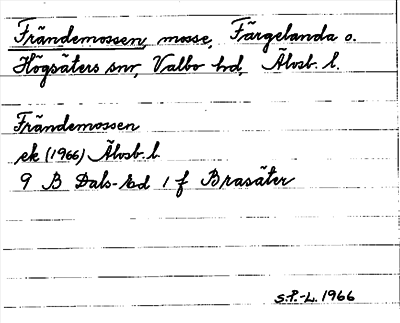 Frändemossen, mosse, Färgelanda o.
Högsäters snr, Valbo hd, Älvsb. l.
Frändemossen
ek (1966) Älvsb. l.
9 B Dals-Ed 1 f Brasäter
S.P.-L. 1966